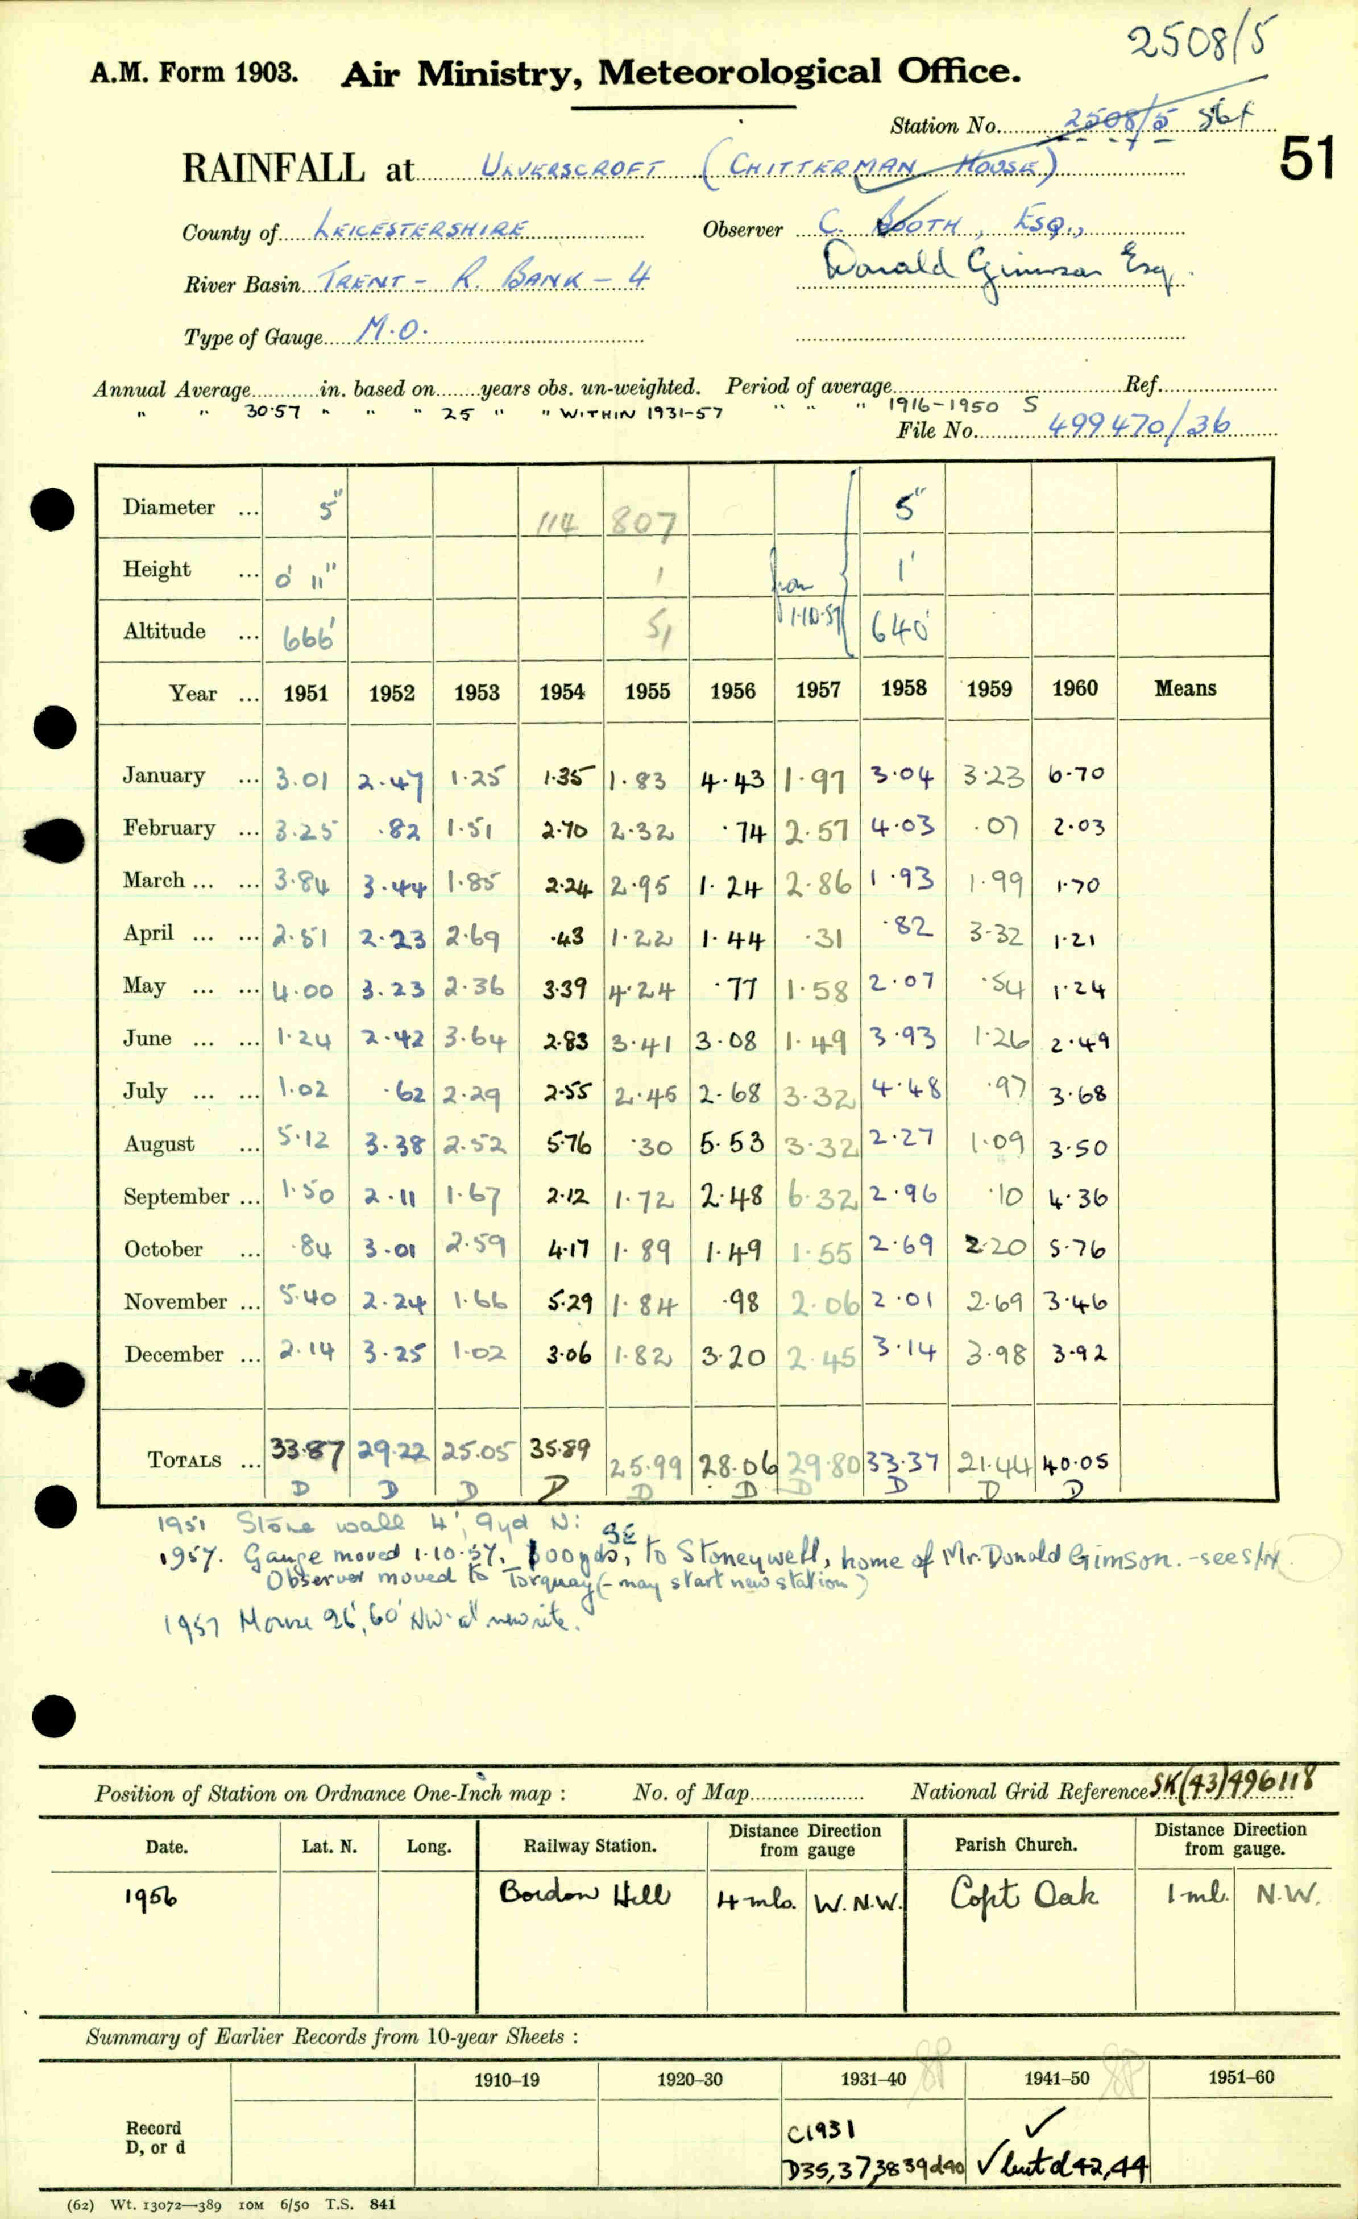 2508/5
A.M. Form 1903. Air Ministry, Meteorological Office.
Station No. 2508/5
51
RAINFALL at ULVERSCROFT (CHITTERMAN HOUSE)
County of LEICESTERSHIRE Observer C. BOOTH, ESQ.,
Donald Gimson Esq.
River Basin TRENT - R. BANK - 4
Type of Gauge M.O.
Annual Average in. based on years obs. un-weighted. Period of average Ref.
" " 30.57 " " " 25 " " WITHIN 1931-57 " " " 1916-1950 S
File No. 499470/36
Diameter ... 5" 114 807 5"
Height ... 0' 11" 1 from 1'
Altitude ... 666' 51 1.10.57 640'
Year ... 1951 1952 1953 1954 1955 1956 1957 1958 1959 1960 Means
January ... 3.01 2.47 1.25 1.35 1.83 4.43 1.97 3.04 3.23 6.70
February ... 3.25 .82 1.51 2.70 2.32 .74 2.57 4.03 .07 2.03
March ... ... 3.84 3.44 1.85 2.24 2.95 1.24 2.86 1.93 1.99 1.70
April ... ... 2.51 2.23 2.69 .43 1.22 1.44 .31 .82 3.32 1.21
May ... ... 4.00 3.23 2.36 3.39 4.24 .77 1.58 2.07 .54 1.24
June ... ... 1.24 2.42 3.64 2.83 3.41 3.08 1.49 3.93 1.26 2.49
July ... ... 1.02 .62 2.29 2.55 2.45 2.68 3.32 4.48 .97 3.68
August ... 5.12 3.38 2.52 5.76 .30 5.53 3.32 2.27 1.09 3.50
September ... 1.50 2.11 1.67 2.12 1.72 2.48 6.32 2.96 .10 4.36
October ... .84 3.01 2.59 4.17 1.89 1.49 1.55 2.69 2.20 5.76
November ... 5.40 2.24 1.66 5.29 1.84 .98 2.06 2.01 2.69 3.46
December ... 2.14 3.25 1.02 3.06 1.82 3.20 2.45 3.14 3.98 3.92
TOTALS ... 33.87 29.22 25.05 35.89 25.99 28.06 29.80 33.37 21.44 40.05
D D D D D D D D D D
1951 Stone wall 4', 9yd N:
1957. Gauge moved 1.10.57. 600yds, SE to Stoneywell, home of Mr. Donald Gimson. - see
Observer moved to Torquay (- may start new station)
1957 House 26', 60' NW at new site.
Position of Station on Ordnance One-Inch map : No. of Map National Grid Reference SK(43)496118
Date. Lat. N. Long. Railway Station. Distance from gauge Direction Parish Church. Distance from gauge. Direction
1956 Bardon Hill 4 mls. W.N.W. Copt Oak 1 ml. N.W.
Summary of Earlier Records from 10-year Sheets :
1910–19 1920–30 1931–40 1941–50 1951–60
Record C1931 ✓
D, or d D35,37,38 39 d40 ✓ but d 42, 44
(62) Wt. 13072—389 10M 6/50 T.S. 841